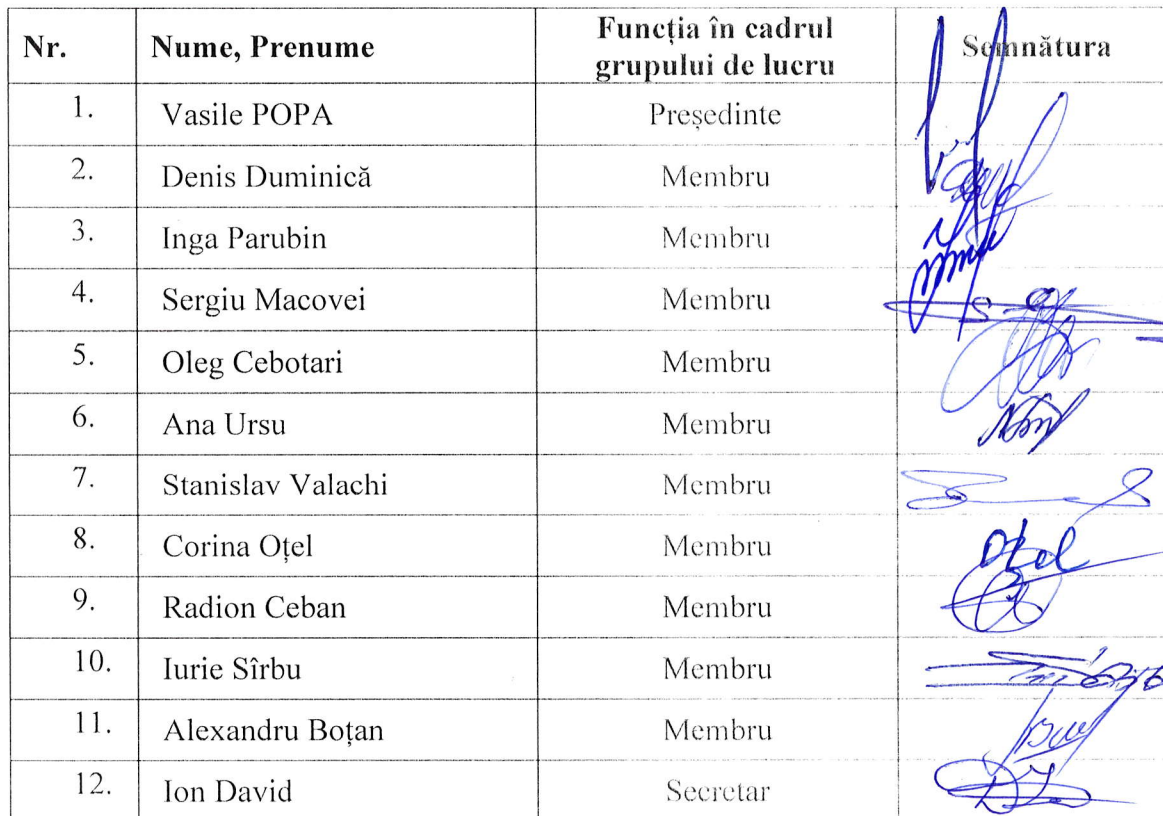 Nr. Nume, Prenume Funcția în cadrul grupului de lucru Semnătura
1. Vasile POPA Președinte
2. Denis Duminică Membru
3. Inga Parubin Membru
4. Sergiu Macovei Membru
5. Oleg Cebotari Membru
6. Ana Ursu Membru
7. Stanislav Valachi Membru
8. Corina Oțel Membru
9. Radion Ceban Membru
10. Iurie Sîrbu Membru
11. Alexandru Boțan Membru
12. Ion David Secretar